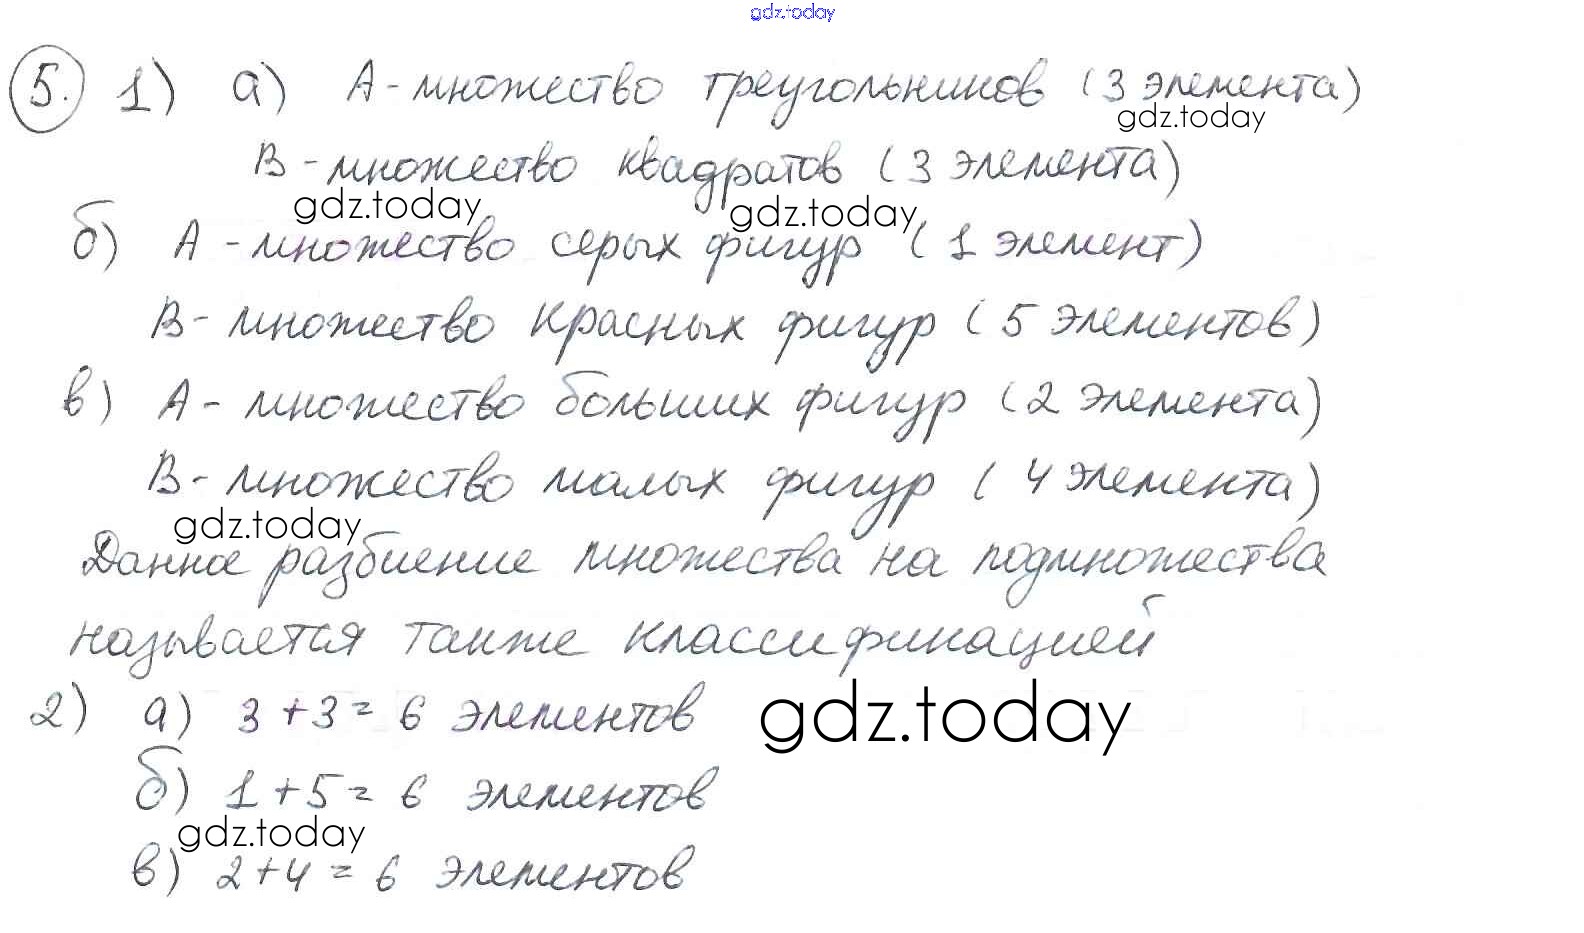 gdz.today
5. 1) а) А - множество треугольников (3 элемента)
gdz.today
В - множество квадратов (3 элемента)
gdz.today gdz.today
б) А - множество серых фигур (1 элемент)
В - множество красных фигур (5 элементов)
в) А - множество больших фигур (2 элемента)
В - множество малых фигур (4 элемента)
gdz.today
Данное разбиение множества на подмножества
называется также классификацией
2) а) 3+3=6 элементов
gdz.today
б) 1+5=6 элементов
gdz.today
в) 2+4=6 элементов